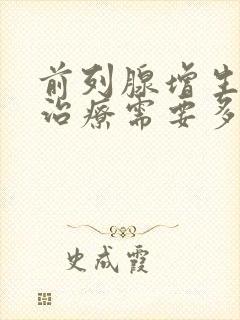 前列腺增生
治疗需要多
史成霞